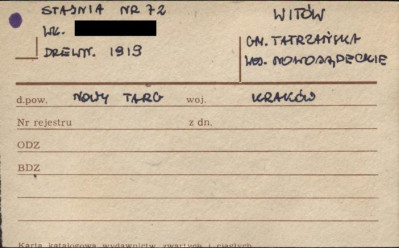 STAJNIA NR 72
WŁ.
DREWN. 1919
WITÓW
GM. TATRZAŃSKA
WOJ. NOWOSĄDECKIE
d.pow. NOWY TARG woj. KRAKÓW
Nr rejestru z dn.
ODZ
BDZ
Karta katalogowa wydawnictw zwartych i ciągłych.